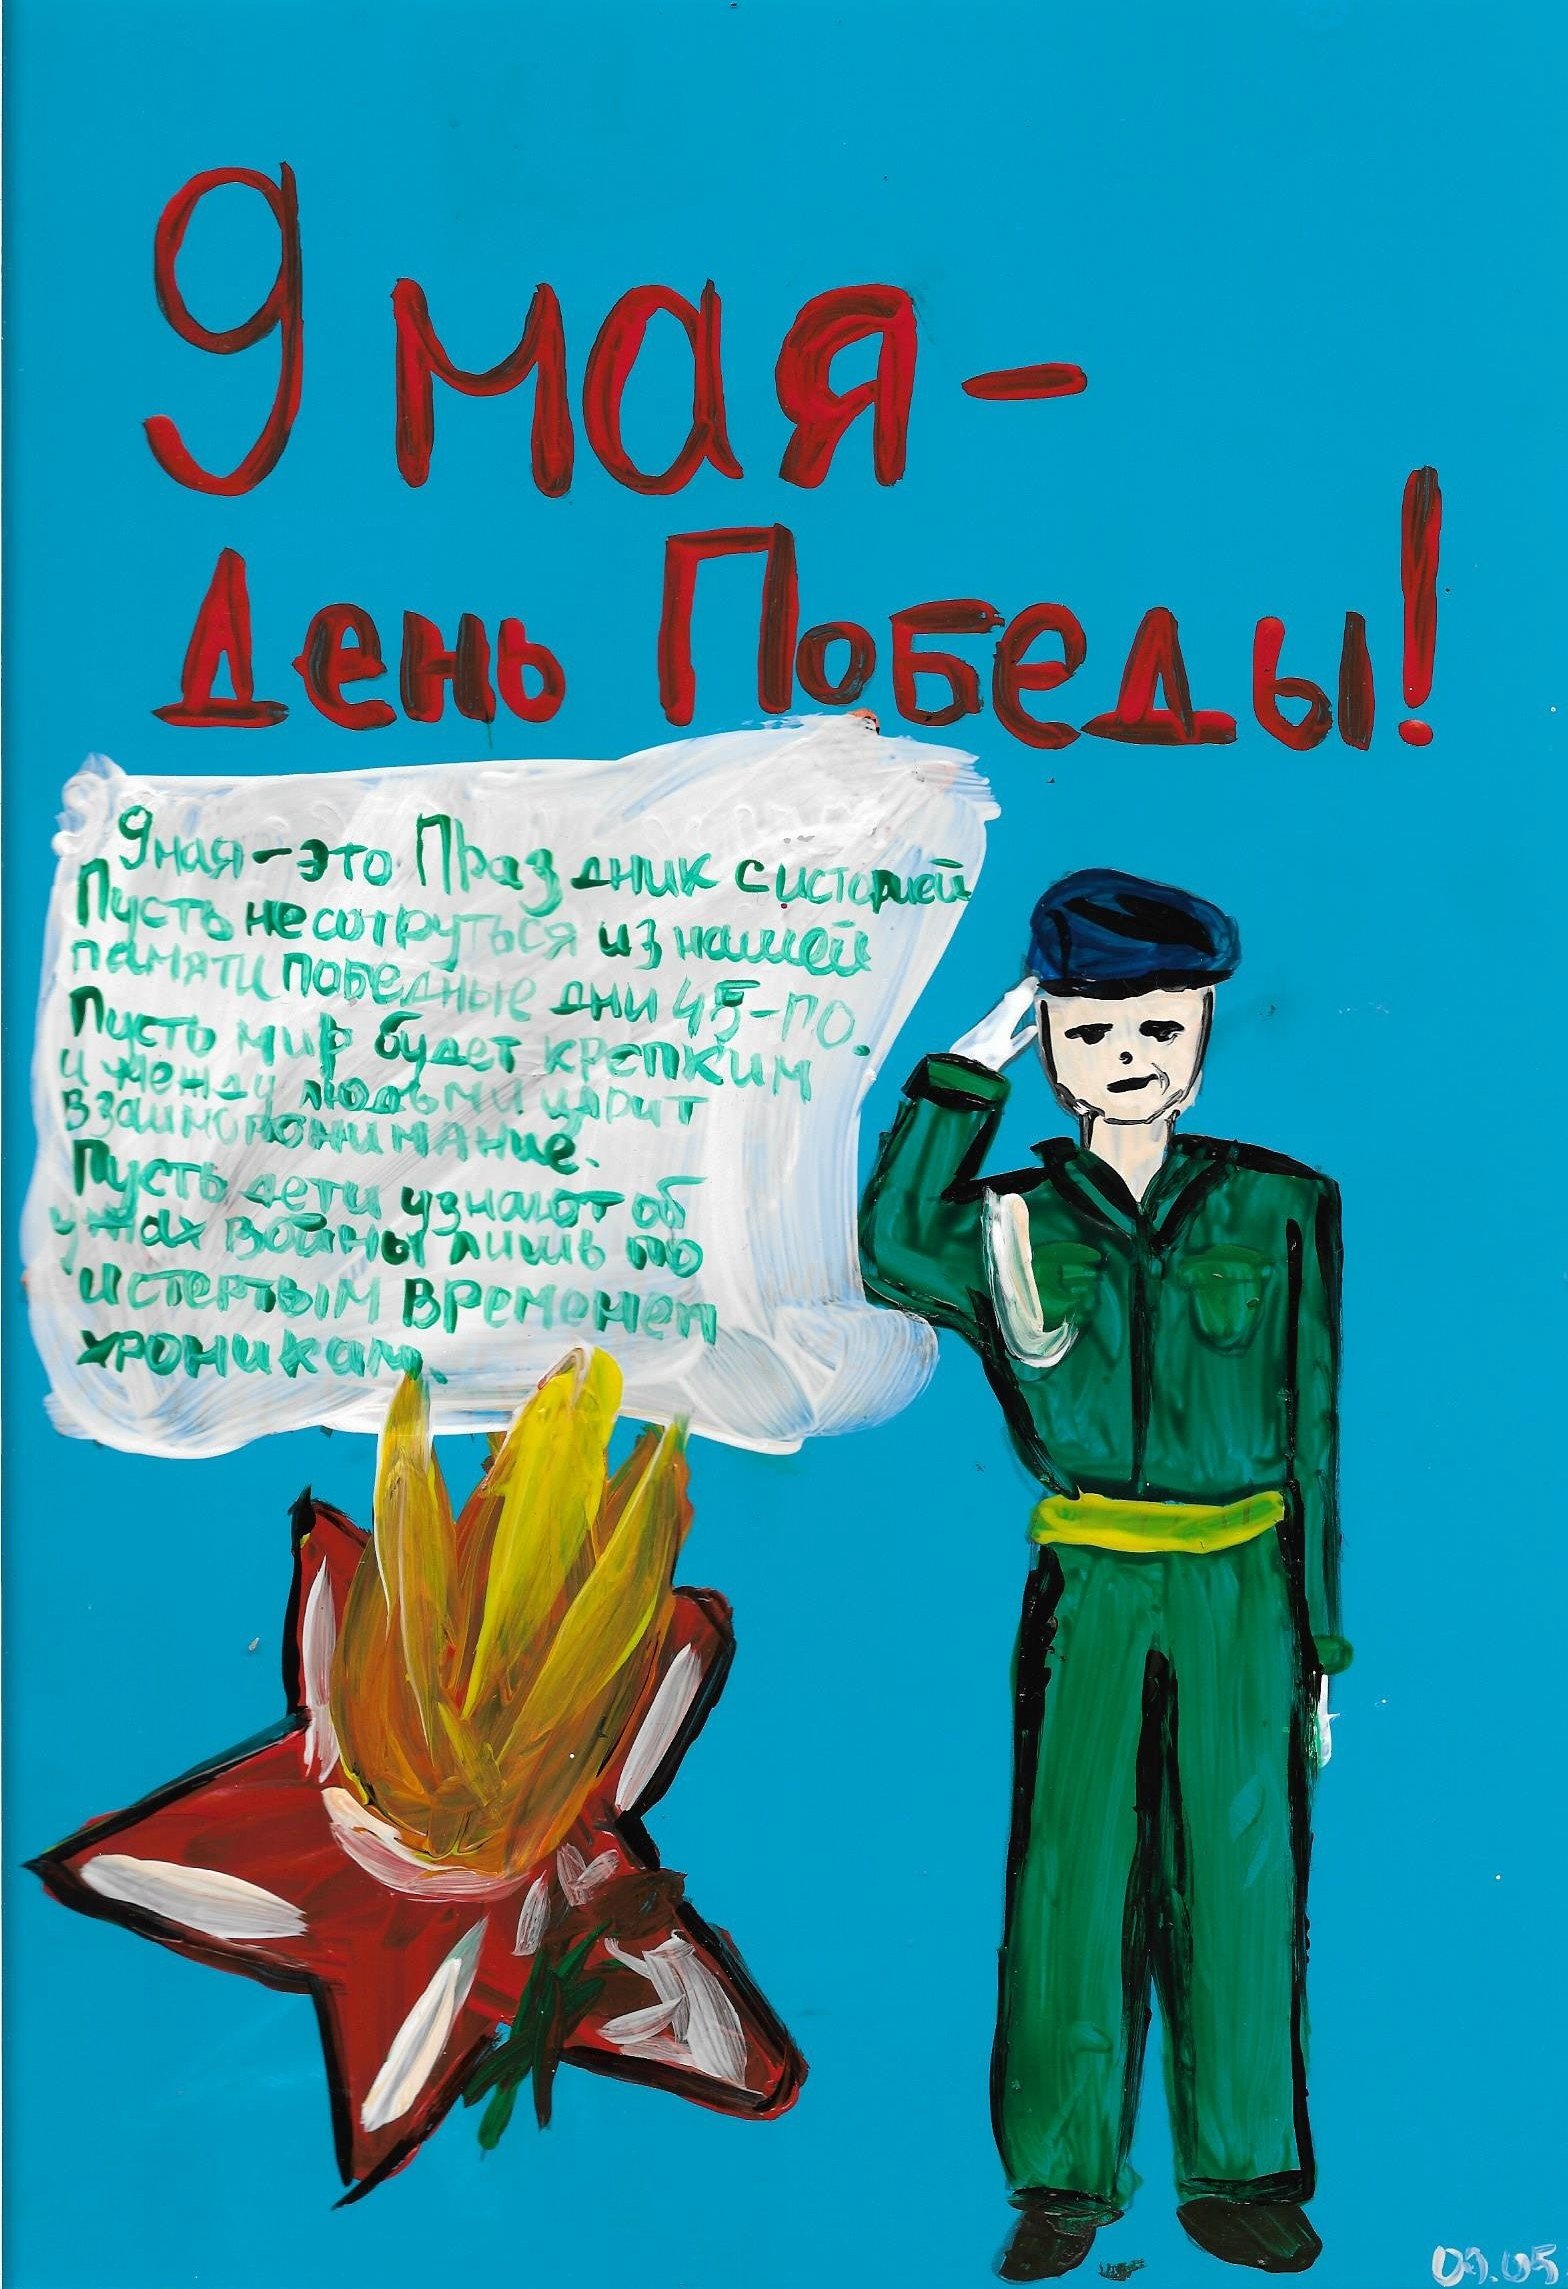 9 мая-
День Победы!
9мая-это Праздник с историей
Пусть не сотруться из нашей
памяти победные дни 45-го.
Пусть мир будет крепким
и между людьми царит
взаимопонимание.
Пусть дети узнают об
ужах войны лишь по
истертым временем
хроникам.
09.05